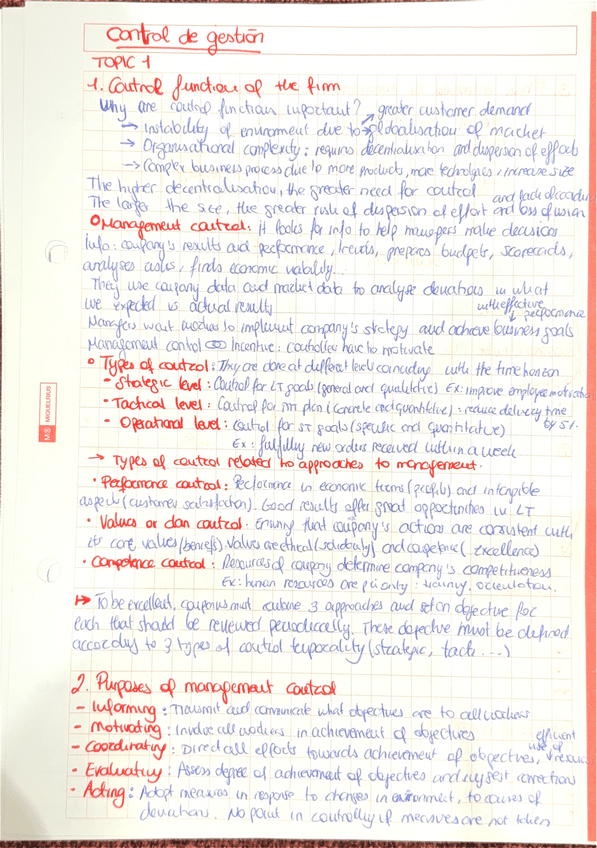 Control de gestión
TOPIC 1
1. Control function of the firm
Why are control functions important? → greater customer demand
→ Instability of environment due to → globalisation of market
→ Organisational complexity: requires decentralisation and dispersion of efforts
→ Complex business process due to more products, more technologies, increase size
The higher decentralisation, the greater need for control
and lack of
The larger the size, the greater risk of dispersion of effort and loss of vision
Management control: it looks for info to help managers make decisions
Info: company's results and performance, trends, prepares budgets, scorecards,
analyses costs, finds economic viability...
They use company data and market data to analyse deviations in what
we expected vs actual results
with effective
↓ performance
Managers want workers to implement company's strategy and achieve business goals
Management control Incentive: controllers have to motivate
Types of control: They are done at different levels coinciding with the time horizon
- Strategic level: Control for LT goals (general and qualitative) Ex: improve employee motivation
- Tactical level: Control for MT plan (concrete and quantitative): reduce delivery time
by 5%.
- Operational level: control for ST goals (specific and quantitative)
Ex: fulfilling new orders received within a week
→ Types of control related to approaches to management.
• Performance control: Performance in economic terms (profits) and intangible
aspects (customer satisfaction). Good results offer good opportunities in LT
• Values or clan control: Ensuring that company's actions are consistent with
its core values/beliefs. Values are ethical (solidarity) and competence (excellence)
• Competence control: Resources of company determine company's competitiveness
Ex: human resources are priority: training, orientation.
To be excellent, company must combine 3 approaches and set an objective for
each that should be reviewed periodically. These objective must be defined
according to 3 types of control temporality (strategic, tactic ...)
2. Purposes of management control
- Informing: Transmit and communicate what objectives are to all workers
- Motivating: Involve all workers in achievement of objectives
efficient
use of
- Coordinating: Direct all efforts towards achievement of objectives,
- Evaluating: Assess degree of achievement of objectives and suggest corrections
- Acting: Adopt measures in response to changes in environment, to causes of
deviations. No point in controlling if measures are not taken
M® MIQUELRIUS